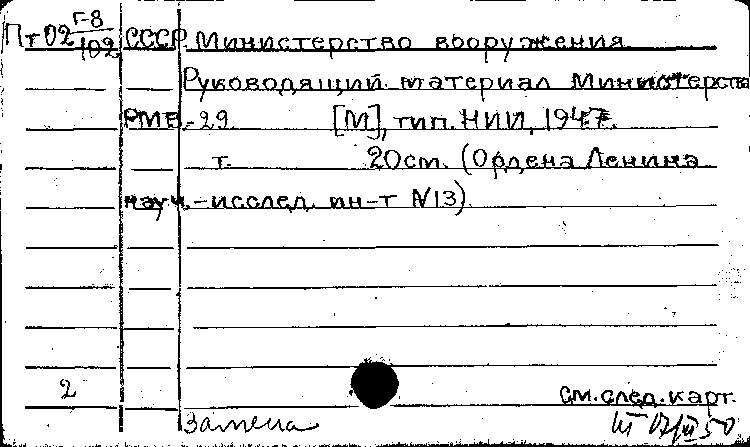 Пт02 Г-8/102 СССР. Министерство вооружения.
Руководящий материал Министерства
РМВ-29. [М], тип. НИИ, 1947.
т. 20см. (Ордена Ленина
науч.-исслед. ин-т №13).
2
см.след.карт.
Замена